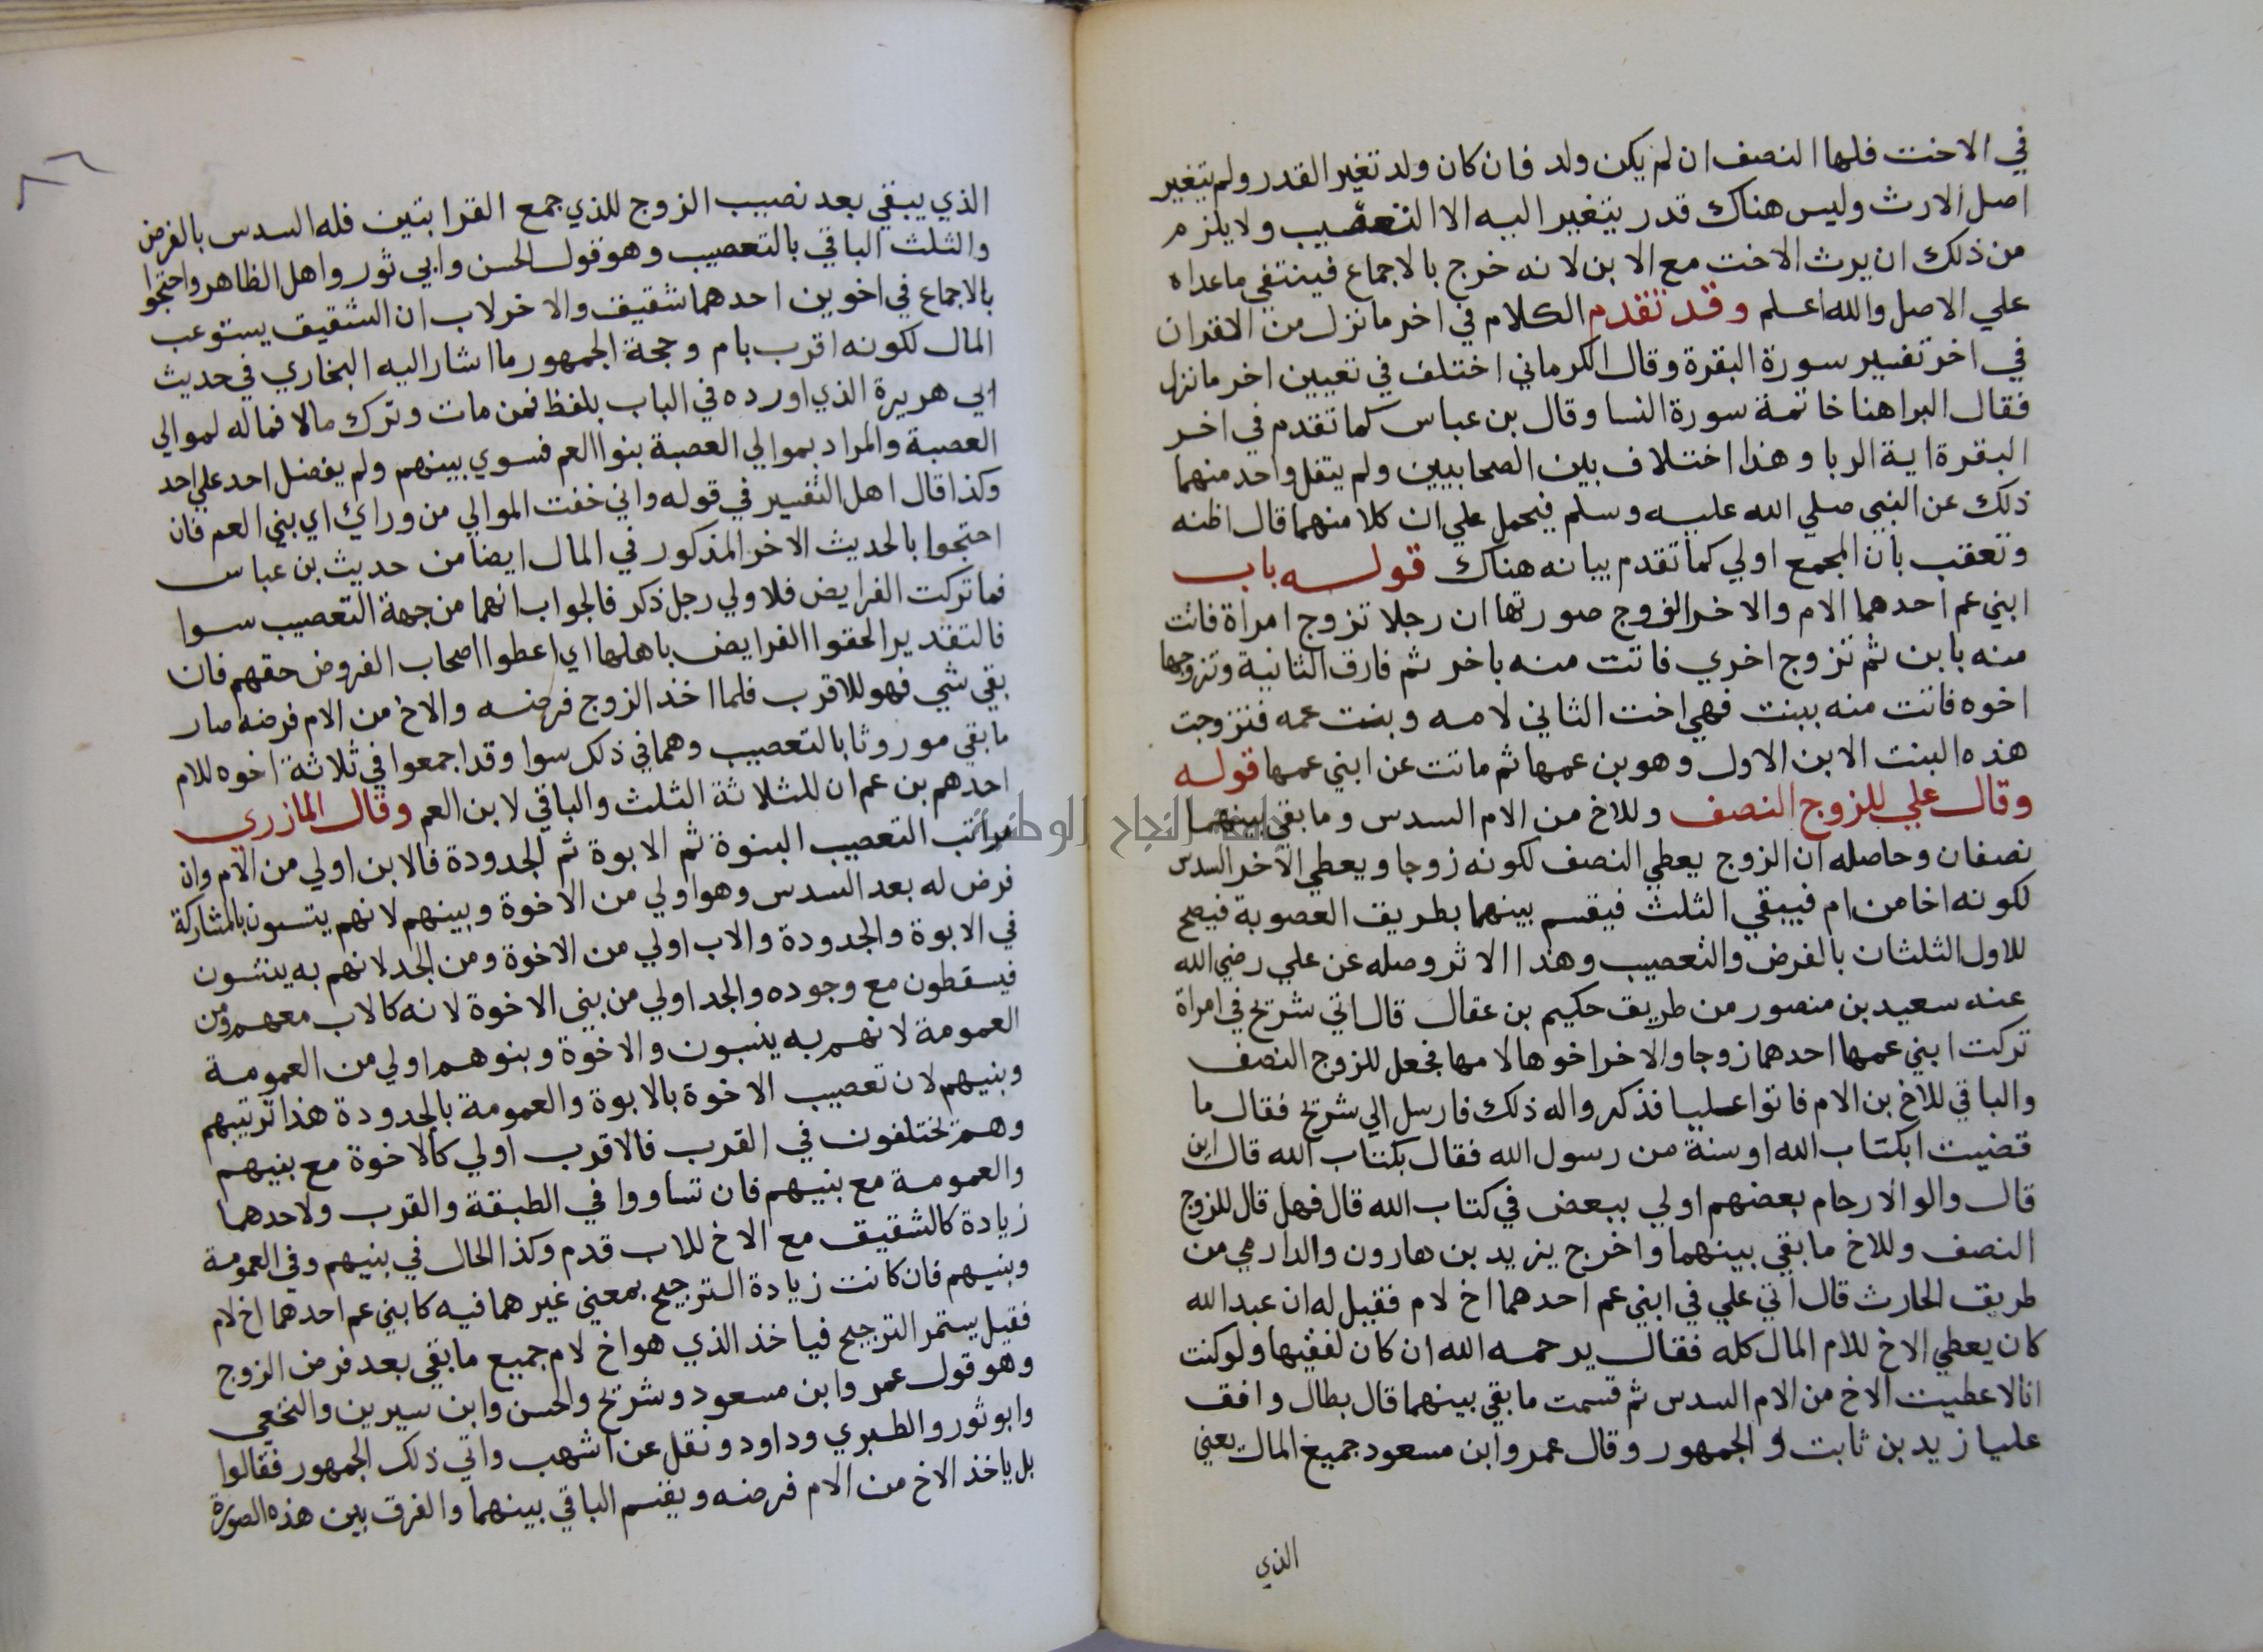 في الاخت فلها النصف ان لم يكن ولد فان كان ولد تغير القدر ولم يتغير
اصل الارث وليس هناك قدر يتغير اليه الا التعصيب ولا يلزم
من ذلك ان يرث الاخت مع الابن لانه خرج بالاجماع فينتفي ماعداه
علي الاصل والله اعلم وقد تقدم الكلام في اخر مانزل من القران
في اخر تفسير سورة البقرة وقال الكرماني اختلف في تعيين اخر مانزل
فقال البرا هنا خاتمة سورة النسا وقال بن عباس كما تقدم في اخر
البقرة اية الربا وهذا اختلاف بين الصحابيين ولم ينقل واحد منهما
ذلك عن النبي صلي الله عليه وسلم فيحمل علي ان كلا منهما قال اظنه
وتعقب بان الجمع اولي كما تقدم بيانه هناك قوله باب
ابني عم احدهما الام والاخر الزوج صورتها ان رجلا تزوج امراة فاتت
منه بابن ثم تزوج اخري فاتت منه باخر ثم فارق الثانية وتزوجها
اخوه فاتت منه ببنت فهي اخت الثاني لامه وبنت عمه فتزوجت
هذه البنت الابن الاول وهو بن عمها ثم ماتت عن ابني عمها قوله
وقال علي للزوج النصف وللاخ من الام السدس وما بقي بينهما
نصفان وحاصله ان الزوج يعطي النصف لكونه زوجا ويعطي الاخر السدس
لكونه اخا من ام فيبقي الثلث فيقسم بينهما بطريق العصوبة فيصح
للاول الثلثان بالفرض والتعصيب وهذا الاثر وصله عن علي رضي الله
عنه سعيد بن منصور من طريق حكيم بن عقال قال اتي شريح في امراة
تركت ابني عمها احدهما زوجا والاخر اخوها لامها فجعل للزوج النصف
والباقي للاخ بن الام فاتوا عليا فذكروا له ذلك فارسل الي شريح فقال ما
قضيت ابكتاب الله او سنة من رسول الله فقال بكتاب الله قال اين
قال والوا الارحام بعضهم اولي ببعض في كتاب الله قال فهل قال للزوج
النصف وللاخ مابقي بينهما واخرج يزيد بن هارون والدارمي من
طريق الحارث قال اتي علي في ابني عم احدهما اخ لام فقيل له ان عبد الله
كان يعطي الاخ للام المال كله فقال يرحمه الله ان كان لفقيها ولوكنت
انا لاعطيت الاخ من الام السدس ثم قسمت مابقي بينهما قال بطال وافق
عليا زيد بن ثابت و الجمهور وقال عمر وابن مسعود جميع المال يعني
الذي
الذي يبقي بعد نصيب الزوج للذي جمع القرابتين فله السدس بالفرض
والثلث الباقي بالتعصيب وهو قول الحسن وابي ثور واهل الظاهر واحتجوا
بالاجماع في اخوين احدهما شقيق والاخر لاب ان الشقيق يستوعب
المال لكونه اقرب بام وحجة الجمهور ما اشار اليه البخاري في حديث
ابي هريرة الذي اورده في الباب بلفظ فمن مات وترك مالا فماله لموالي
العصبة والمراد بموالي العصبة بنوا العم فسوي بينهم ولم يفضل احد علي احد
وكذا قال اهل التفسير في قوله واني خفت الموالي من وراي اي بني العم فان
احتجوا بالحديث الاخر المذكور في المال ايضا من حديث بن عباس
فما تركت الفرايض فلاولي رجل ذكر فالجواب انهما من جهة التعصيب سوا
فالتقدير الحقوا الفرايض باهلها اي اعطوا اصحاب الفروض حقهم فان
بقي شي فهو للاقرب فلما اخذ الزوج فرضه والاخ من الام فرضه صار
مابقي موروثا بالتعصيب وهما في ذلك سوا وقد اجمعوا في ثلاثة اخوه للام
احدهم بن عم ان للثلاثة الثلث والباقي لابن العم وقال المازري
مراتب التعصيب البنوة ثم الابوة ثم الجدودة فالابن اولي من الام وان
فرض له بعد السدس وهو اولي من الاخوة وبينهم لانهم ينتسبون بالمشاركة
في الابوة والجدودة والاب اولي من الاخوة ومن الجد لانهم به ينتسون
فيسقطون مع وجوده والجد اولي من بني الاخوة لانه كالاب معهم ومن
العمومة لانهم به ينسبون والاخوة وبنوهم اولي من العمومة
وبنيهم لان تعصيب الاخوة بالابوة والعمومة بالجدودة هذا ترتيبهم
وهم يختلفون في القرب فالاقرب اولي كالاخوة مع بنيهم
والعمومة مع بنيهم فان تساووا في الطبقة والقرب ولاحدهما
زيادة كالشقيق مع الاخ للاب قدم وكذا الحال في بنيهم وفي العمومة
وبنيهم فان كانت زيادة الترجيح بمعني غير هما فيه كابني عم احدهما اخ لام
فقيل يستمر الترجيح فياخذ الذي هو اخ لام جميع مابقي بعد فرض الزوج
وهو قول عمر وابن مسعود وشريح والحسن وابن سيرين والنخعي
وابو ثور والطبري وداود ونقل عن اشهب واتي ذلك الجمهور فقالوا
بل ياخذ الاخ من الام فرضه ويقسم الباقي بينهما والفرق بين هذه الصورة
جامعة النجاح الوطنية